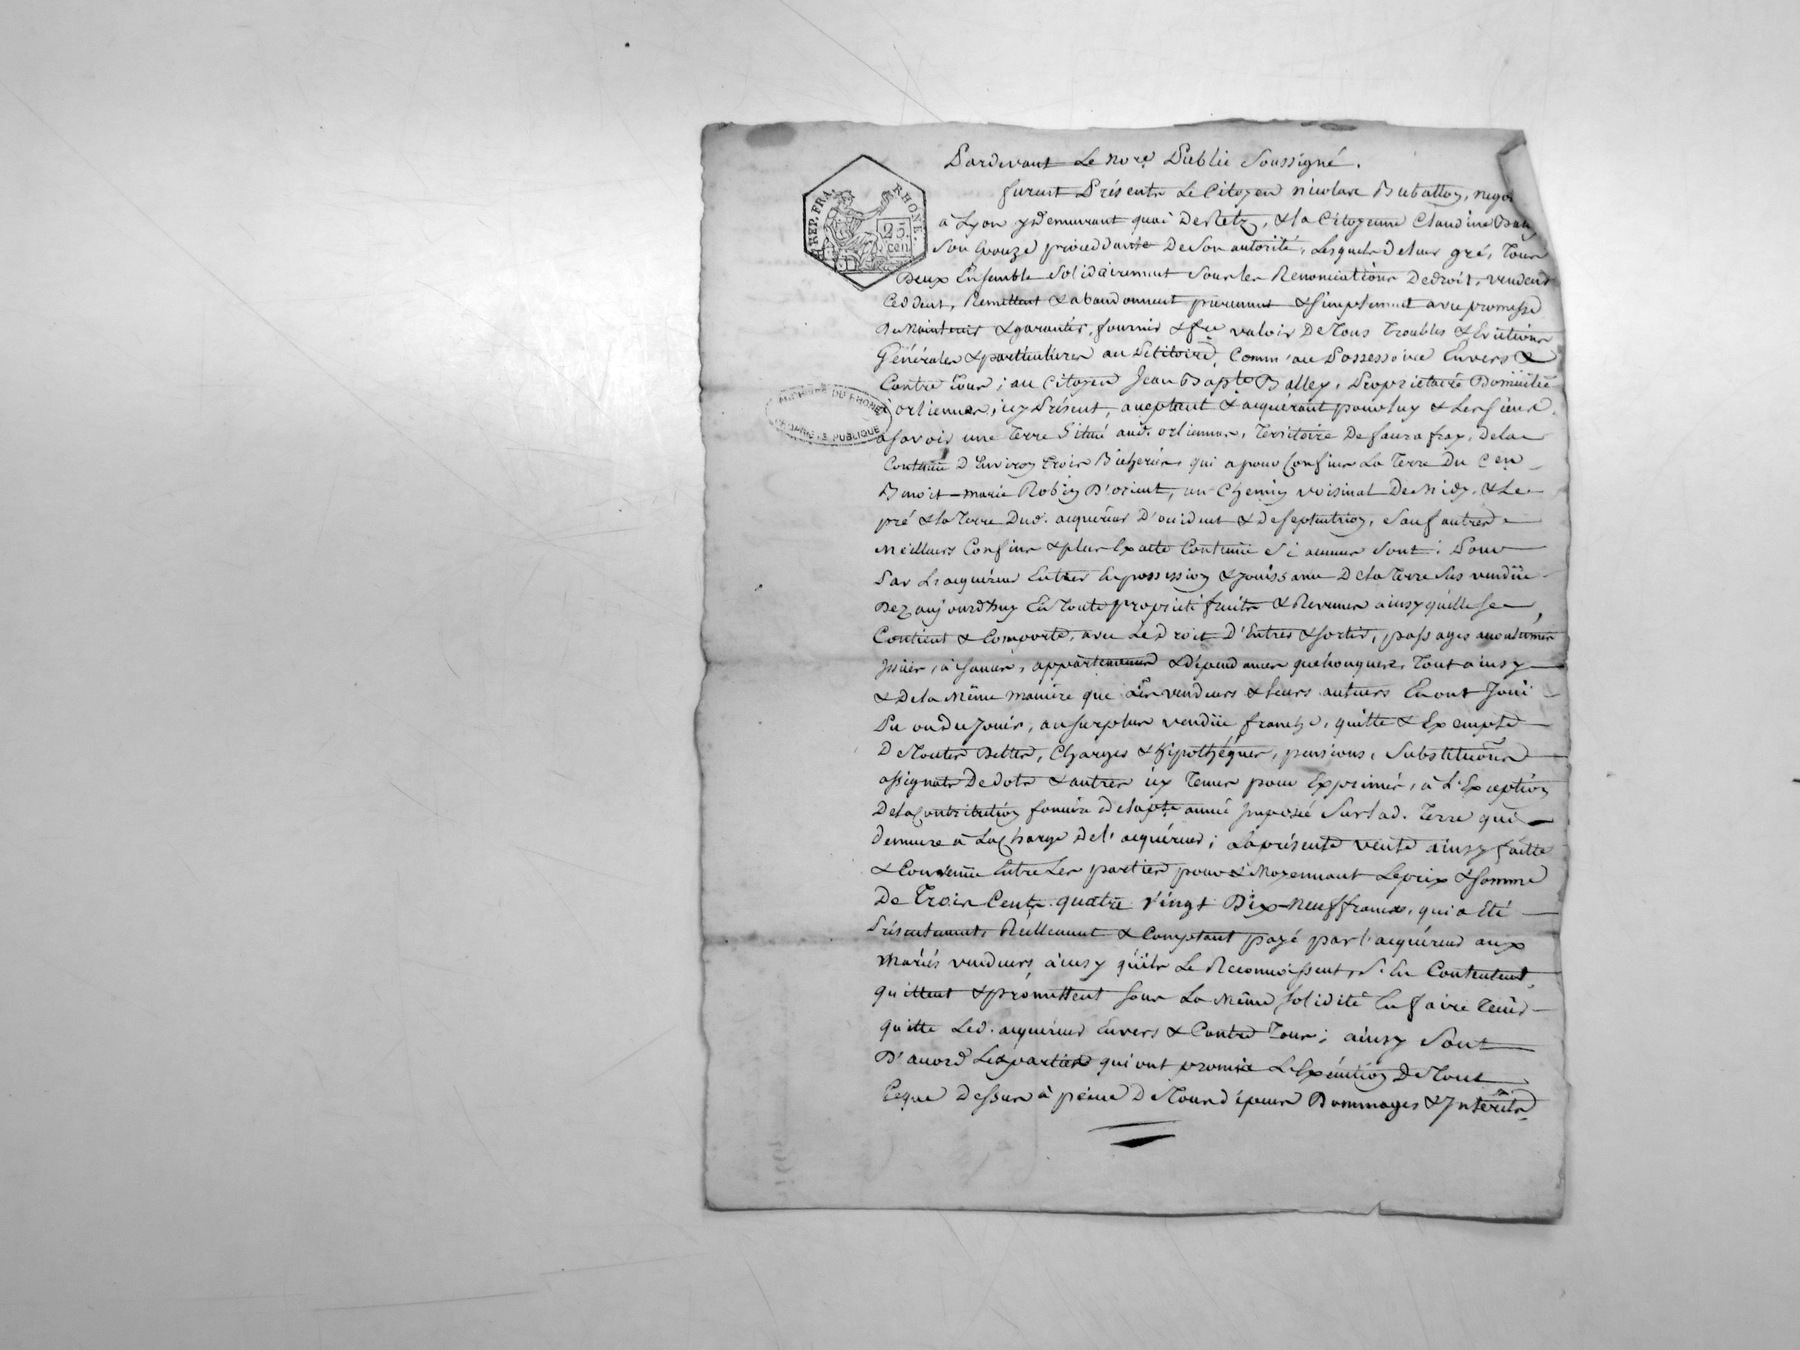 Pardevant Le Nore Public Soussigné.
furent Présents Le Citoyen Nicolas
à Lyon y Demeurant quai De Retz, & la Citoyenne Claudine
Son Epouze procedante De Son autorité, Lesquels de leur gré, Tous
Deux Ensemble Solidairement Sous les Renonciations De droit, vendent
Cedent, Remettent & abandonnent purement & simplement avec promesse
De Maintenir & garantir, fournir & fre valoir De Tous Troubles & Evictions
Générales & particulieres au Pétitoire Comm'au Possessoire Envers &
Contre Tous; au Citoyen Jean Bapte Balley, Proprietaire Domicilié
à orliennas, icy Présent, acceptant & acquérant pour luy & Les siens,
asavoir une Terre Située aud. orliennas, Territoire De, de la
Contenue D'Environ trois Bicherées qui a pour Confins La Terre Du Cen
Benoit-marie Robin D'orient, un Chemin voisinal De midy, & Le
pré & la Terre Dud. acquéreur D'occident & de septentrion, Sauf autres
Meilleurs Confins & plus Exacte Contenue Si aucuns Sont; Pour
Par L'acquéreur Entrer En possession & jouissance De la Terre Sus vendüe
Dez aujourd'huy En Toute propriété fruits & Revenus ainsy qu'elle Se
Contient & Comporte, avec Le Droit D'Entrer & sortir, passages accoutumés
Issües, aisances, appartenances & dépendances quelconques, Tout ainsy
& De la Même maniere que Les vendeurs & leurs auteurs En ont Joüi
Pu ou Du Jouir, au surplus vendüe franche, quitte & Exempte
De Toutes Dettes, Charges & Hipothéques, pensions, Substitutions
assignats De dots & autres icy Tenus pour Exprimés, à L'Exception
De la Contribution fonciere de la pnte année Imposée Sur lad. Terre qui
demeure à La Charge De l'acquéreur; La présente vente ainsy faitte
& Convenüe Entre Les parties pour & Moyennant Le prix & somme
De Trois Cents quatre Vingt Dix-neuf francs, qui a Eté
Présentement Réellement & Comptant payé par l'acquéreur aux
Mariés vendeurs ainsy qu'ils Le Reconnoissent, S'En Contentent,
quittent & prómettent sous La Même solidité L'En faire Tenir
quitte Led. acquéreur Envers & Contre Tous; ainsy Sont
D'accord Les parties qui ont promis L'Exécution De Tout
Ceque Dessus à peine De Tous dépens Dommages & Intérêts
REP. FRA.
RHONE.
25
cen
ARCHIVES DU RHONE